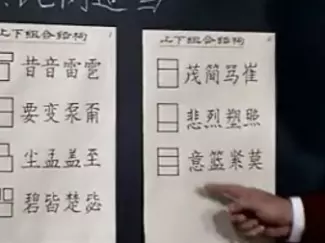 上下组合结构
昔音雷雹
要变泵甭
尘孟盖至
碧皆楚毖
上下组合结构
茂简骂崔
悲烈塑照
意篮紧莫